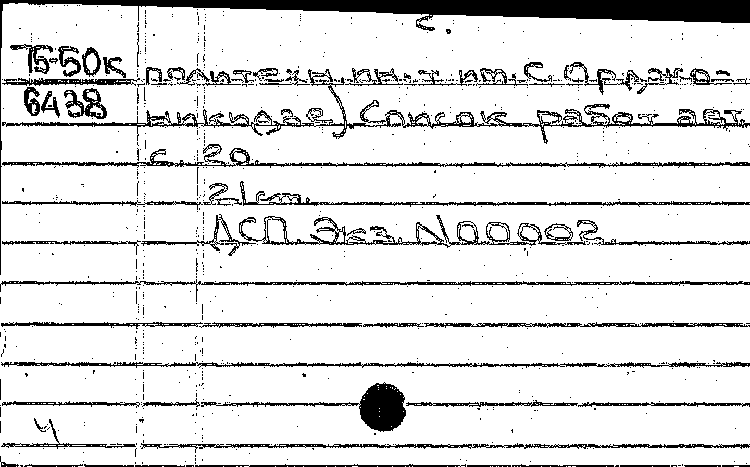 с.
Т5-50к политехн. ин-т им. С. Орджо-
6438 никидзе). Список работ авт.
с. 20.
21 cm.
ДСП. Экз. N 00002.
ч